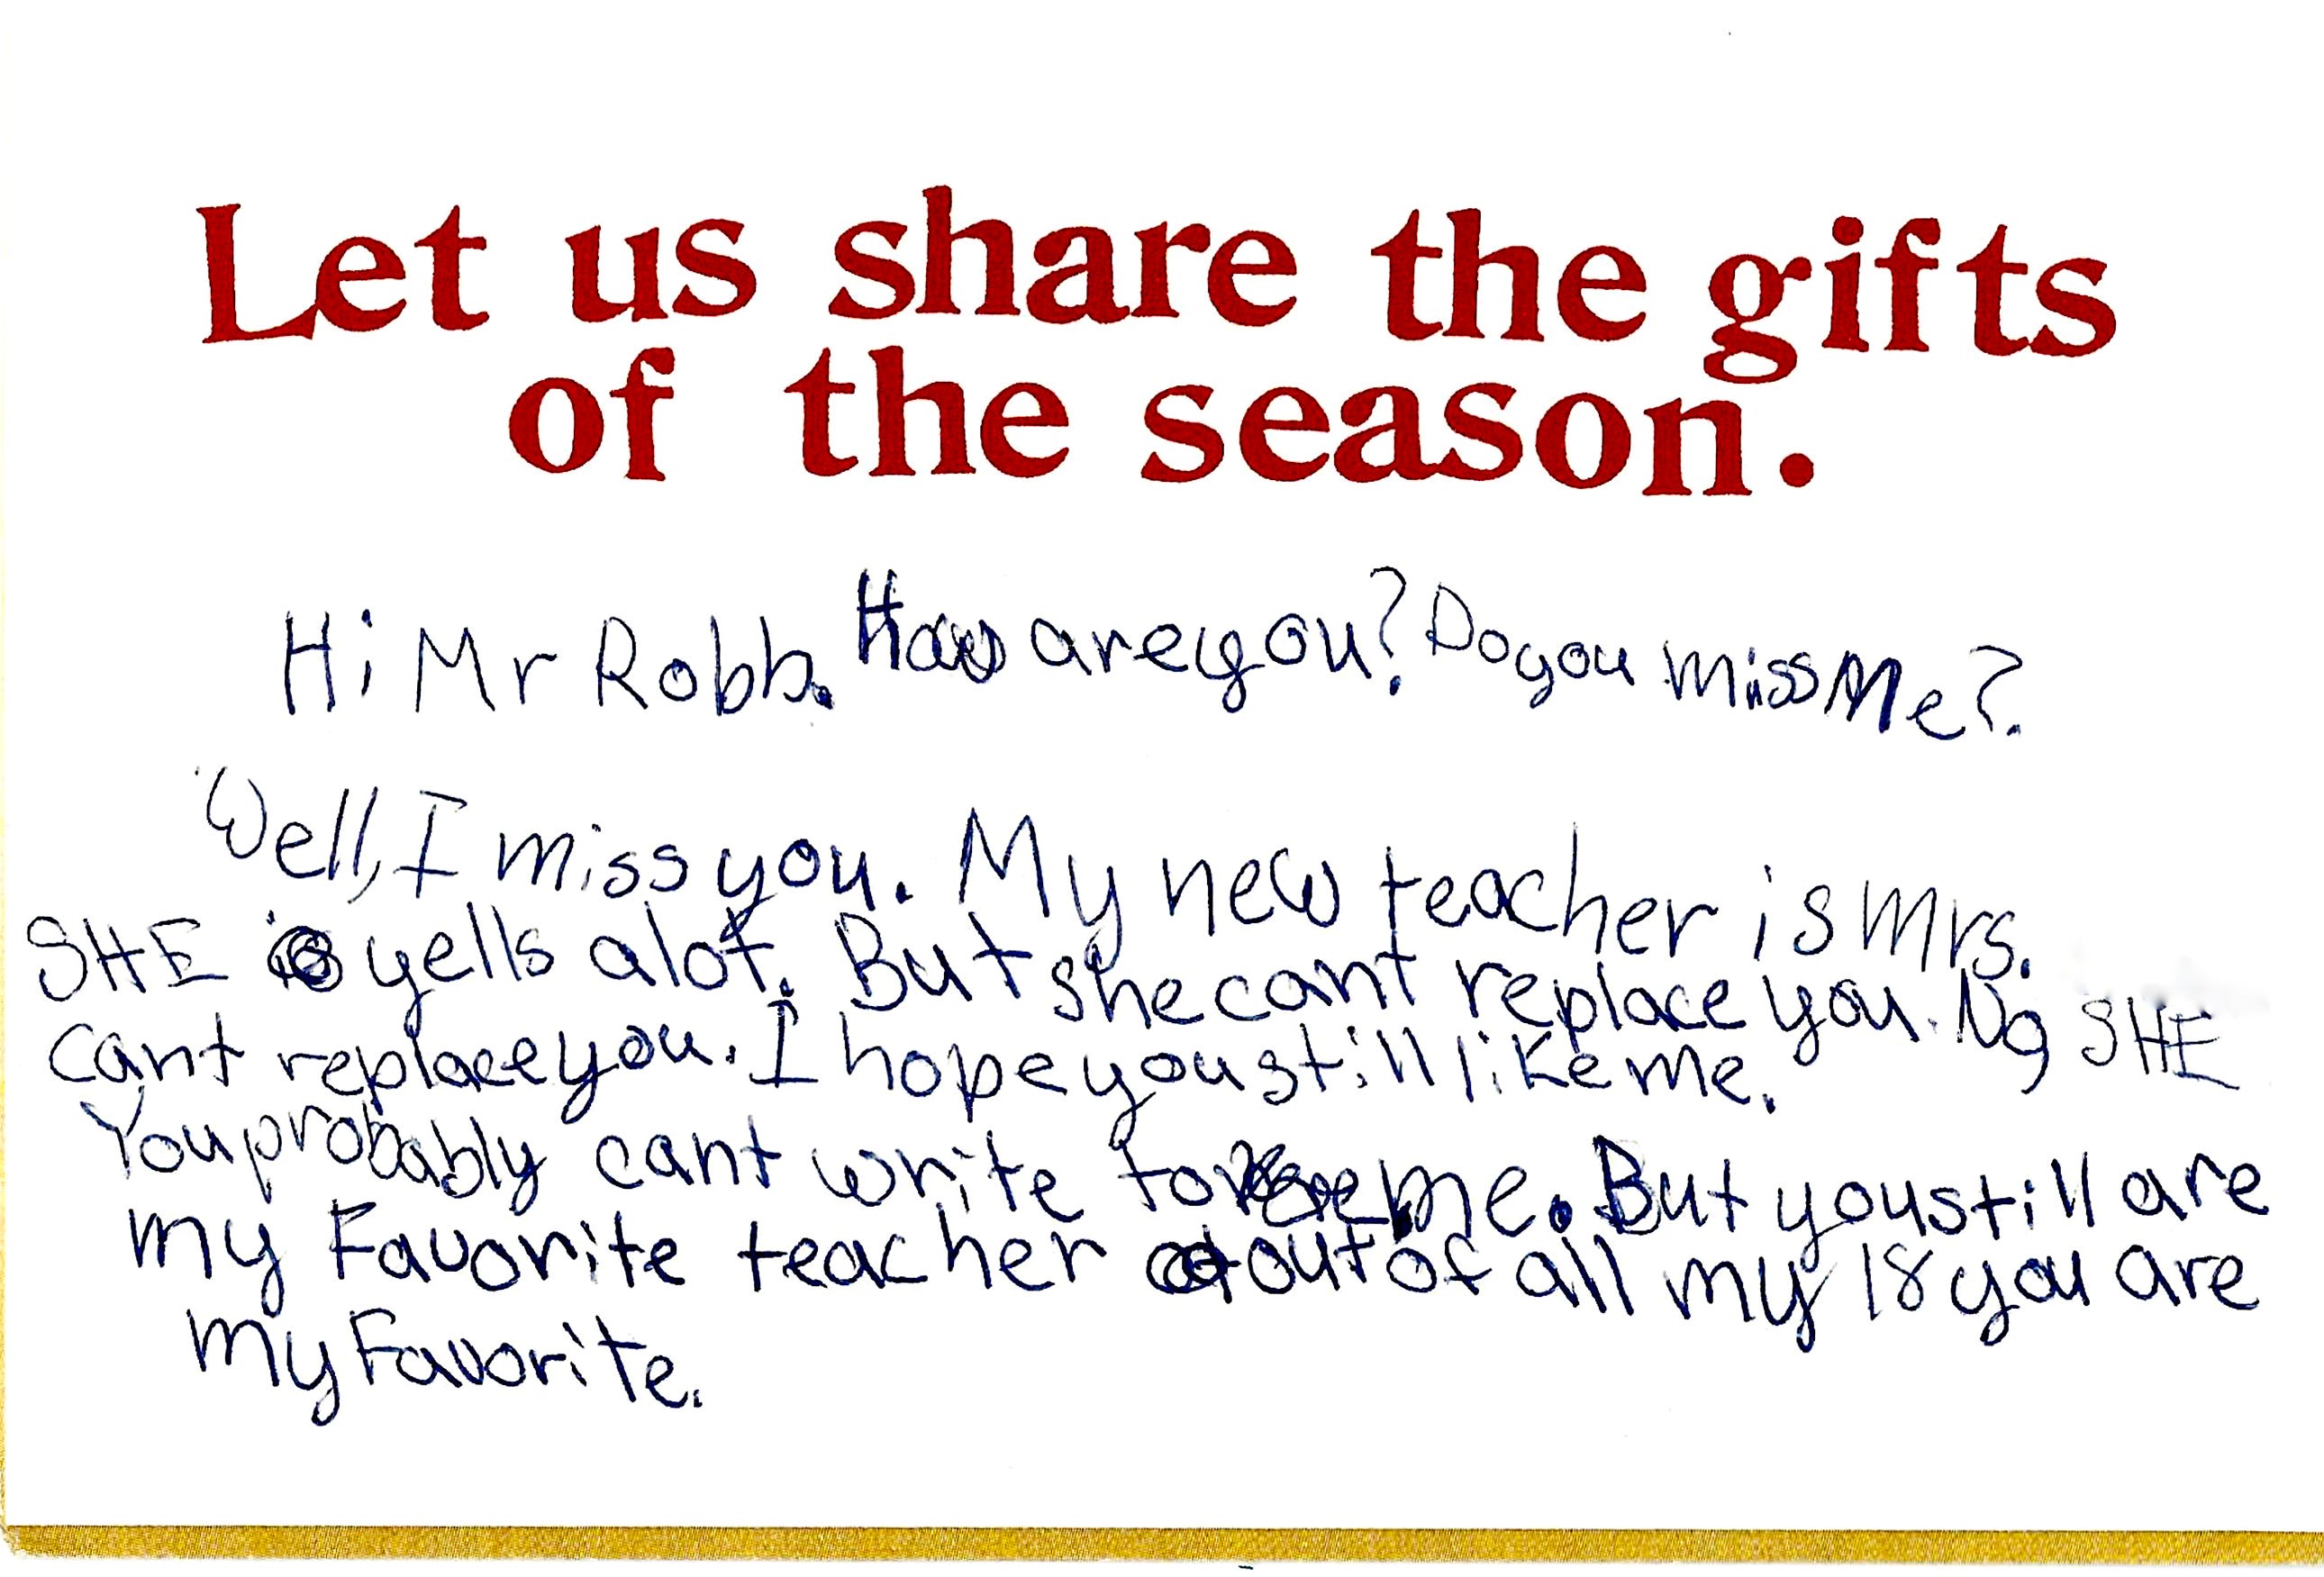 Let us share the gifts
of the season.
Hi Mr Robb. How are you? Do you miss Me?
Well, I miss you. My new teacher is Mrs.
SHE yells alot. But she cant replace you. No SHE
cant replace you. I hope you still like me.
You probably cant write to me. But you still are
my Favorite teacher out of all my 18 you are
my Favorite.